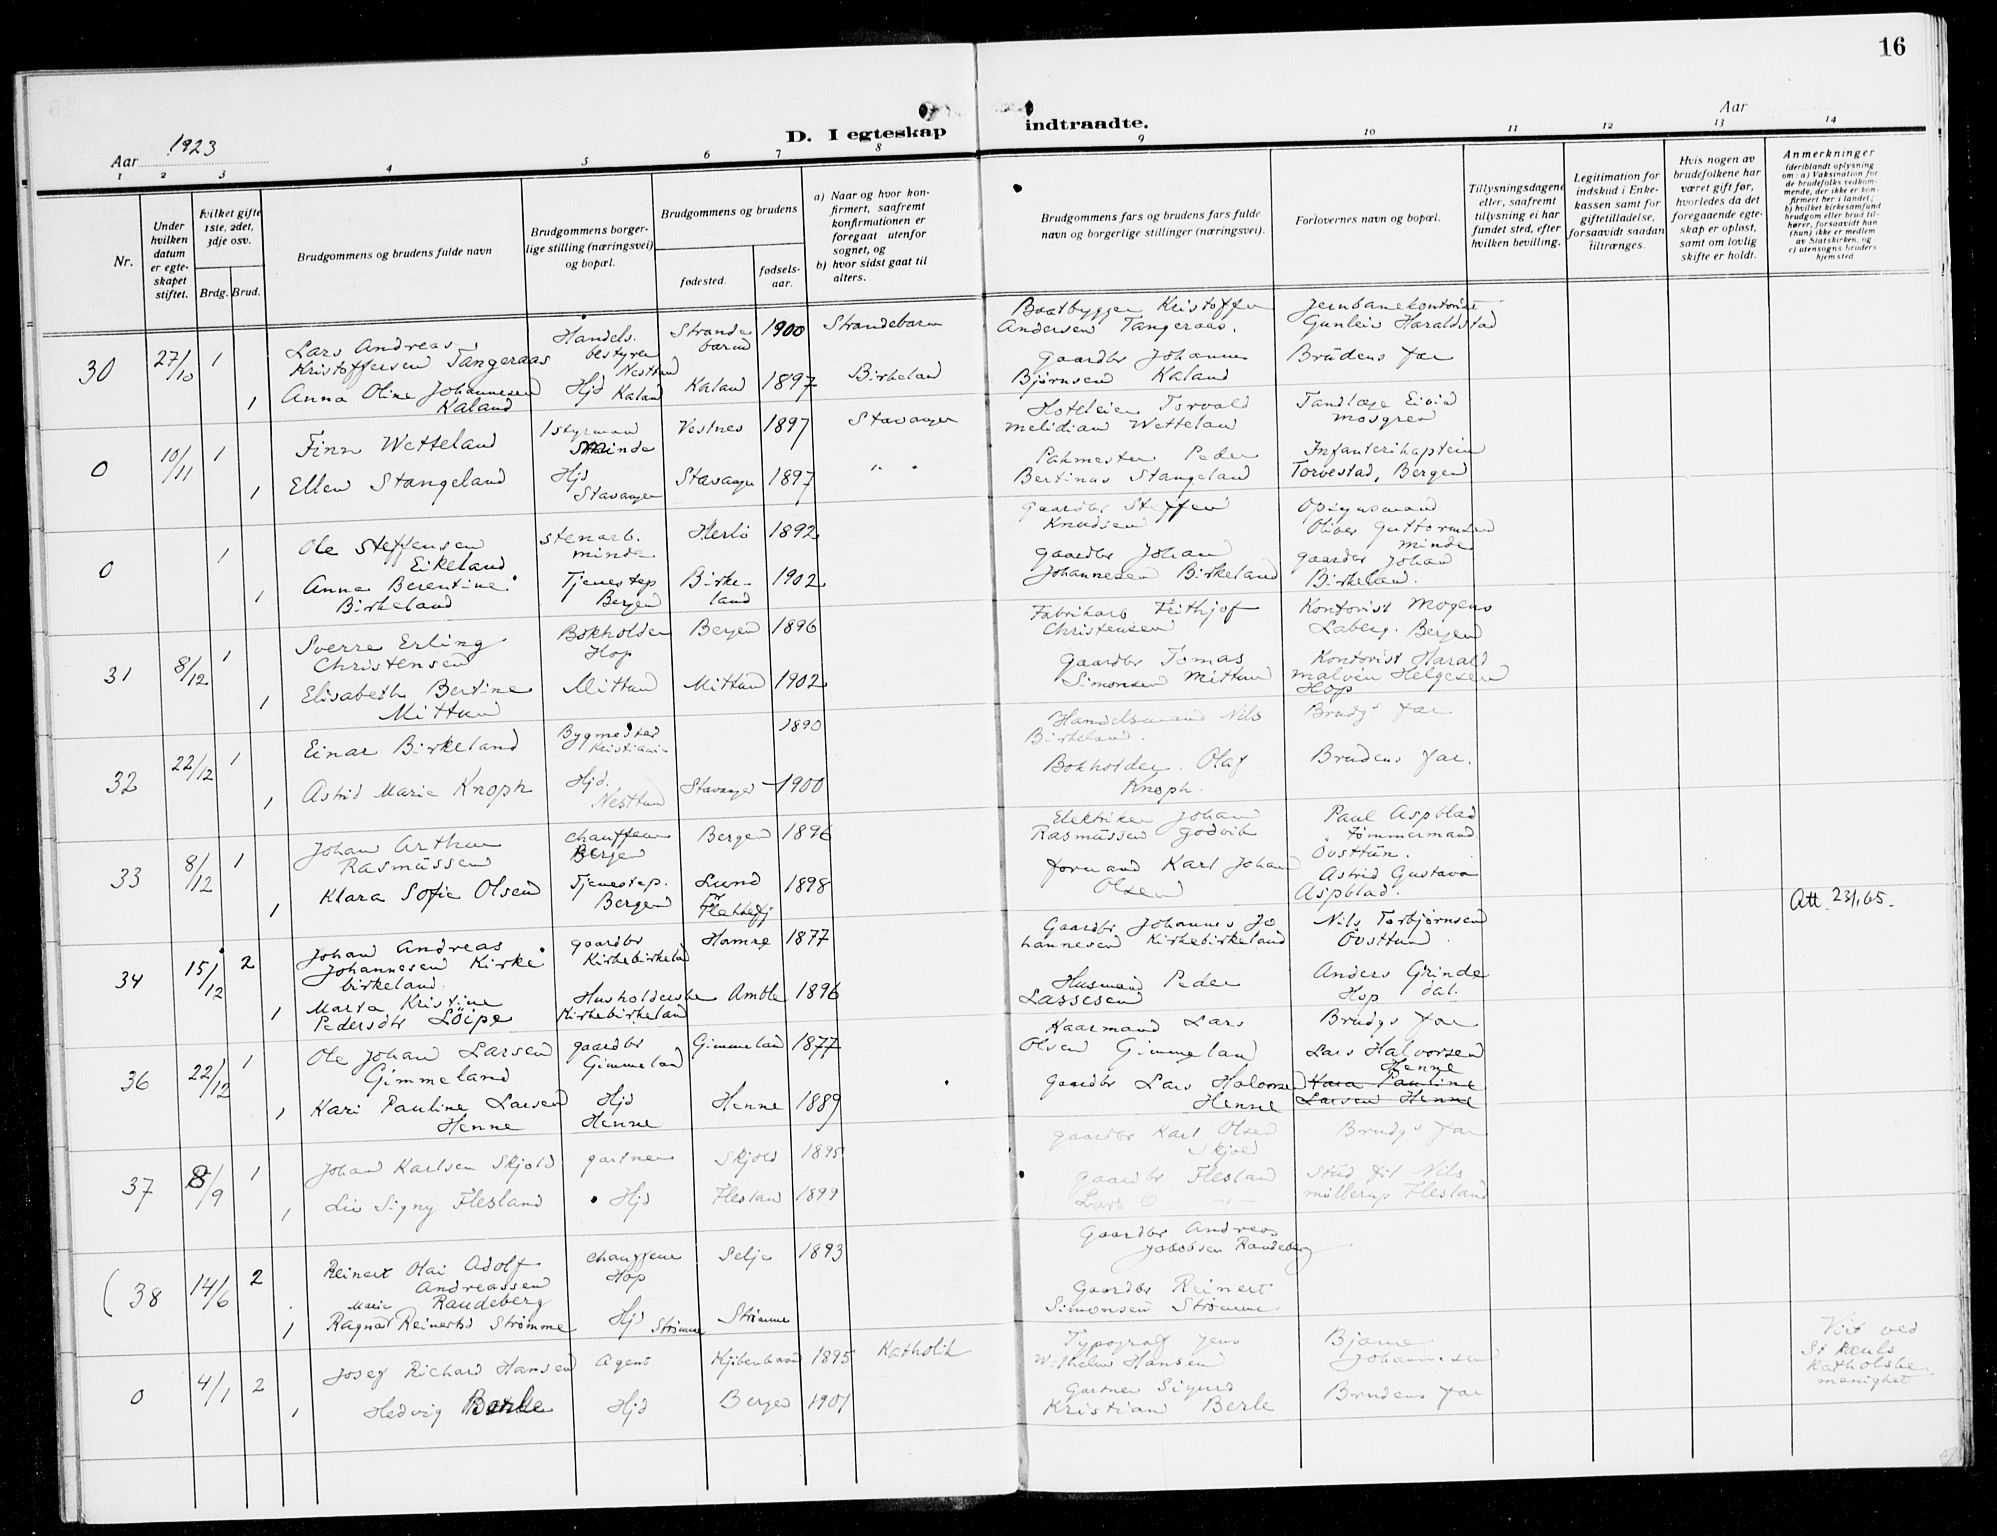 16
Aar 1923
D. I egteskap indtraadte.
Aar
1 2 3 4 5 6 7 8 9 10 11 12 13 14
Nr.
Under hvilken datum er egteskapet stiftet.
hvilket gifte 1ste, 2det, 3dje osv.
Brdg. Brud.
Brudgommens og brudens fulde navn
Brudgommens borgerlige stilling (næringsvei) og bopæl.
Brudgommens og brudens
fødested. fødselsaar.
a) Naar og hvor konfirmert, saafremt konfirmationen er foregaat utenfor sognet, og
b) hvor sidst gaat til alters.
Brudgommens fars og brudens fars fulde navn og borgerlige stillinger (næringsvei).
Forlovernes navn og bopæl.
Tillysningsdagene eller, saafremt tillysning ei har fundet sted, efter hvilken bevilling.
Legitimation for indskud i Enkekassen samt for giftetilladelse, forsaavidt saadan tiltrænges.
Hvis nogen av brudefolkene har været gift før, hvorledes da det foregaaende egteskap er opløst, samt om lovlig skifte er holdt.
Anmerkninger (deriblandt oplysning om: a) Vaksination for de brudefolks vedkommende, der ikke er konfirmert her i landet; b) hvilket kirkesamfund brudgom eller brud tilhører, forsaavidt han (hun) ikke er medlem av Statskirken, og c) utensogns bruders hjemsted
30 27/10 1 Lars Andreas Kristoffersen Tangeraas Handels. bestyrer Nesttun Strandebarm 1900 Strandebarm Baatbygger Kristoffer Andersen Tangeraas. Jernbanekontorist Gunleiv Haraldstad
1 Anna Oline Johannesen Kaland Hjd Kaland Kaland 1897 Birkeland Gaardbr Johannes Bjørnsen Kaland Brudens far
0 10/11 1 Finn Wetteland 1 styrmand Minde Vestnes 1897 Stavanger Hoteleier Torvald Melidian Wetteland Tandlæge Eivind Mosgren
1 Ellen Stangeland Hjd Stavanger Stavanger 1897 " " Pakmester Peder Bertinus Stangeland Infanterikaptein Torvestad, Bergen
0 1 Ole Steffensen Eikeland Stenarb. Minde Herlö 1892 Gaardbr Steffen Knudsen Opsynsmand Oliver Guttormsen Minde
1 Anna Berentine Birkeland Tjenestep Bergen Birkeland 1902 Gaardbr Johan Johannesen Birkeland Gaardbr Johan Birkeland.
31 8/12 1 Sverre Erling Christensen Bokholder Hop Bergen 1896 Fabrikarb Frithjof Christensen Kontorist Mogens Laberg. Bergen
1 Elisabeth Bertine Mittun Mittun Mittun 1902 Gaardbr Tomas Simonsen Mittun Kontorist Harald Malvin Helgesen Hop
32 22/12 1 Einar Birkeland Bygmester Kristian- 1890 Handelsmand Nils Birkeland. Brudgs far
1 Astrid Marie Knoph Hjd. Nesttun Stavanger 1900 Bokholder Olaf Knoph. Brudens far.
33 8/12 1 Johan Arthur Rasmussen Chauffeur Bergen Bergen 1896 Elektriker Johan Rasmussen Godvik Paul Aspblad Tømmermand Øvsttun.
1 Klara Sofie Olsen Tjenestep. Bergen Lund Flekkefj 1898 Formand Karl Johan Olsen Astrid Gustava Aspblad.
34 15/12 2 Johan Andreas Johannesen Kirkebirkeland. Gaardbr Kirkebirkeland Hamre 1877 Gaardbr Johannes Johannesen Kirkebirkeland Nils Torbjørnsen Øvsttun. Att 23/1.65.
1 Marta Kristine Pedersdtr Löipe Husholderske Kirkebirkeland Amble 1896 Husmand Peder Lassesen Anders Grindedal Hop
36 22/12 1 Ole Johan Larsen Gimmeland Gaardbr Gimmeland Gimmeland 1877 Kaarmand Lars Olsen Gimmeland Brudgs far
1 Kari Pauline Larsen Henne Hjd Henne Henne 1889 Gaardbr Lars Halvorsen Henne Lars Halvorsen Henne Kara Pauline Larsen Henne
37 8/9 1 Johan Karlsen Skjold Gartner Skjold 1895 Gaardbr Karl Olsen Skjold Brudgs far
1 Liv Signy Flesland Hjd Flesland 1899 Gaardbr Flesland Lars O Stud fil Nils Møllerup Flesland
(38 14/6 2 Reinert Olai Adolf Andreassen Raudeberg Chauffeur Hop Selje 1893 Gaardbr Andreas Jakobsen Raudeberg
1 Ragna Marie Reinertsd Strømme Hjd Strømme Strømme Gaardbr Reinert Simonsen Strømme
0 4/1 2 Josef Richard Hansen Agent Kjöbenhavn 1895 Katholik Typograf Jens Wilhelm Hansen Bjarne Johannesen Viet ved St Pauls Katholske menighet
1 Hedvig Berle Hjd Bergen 1901 Gartner Sigurd Kristian Berle Brudens far